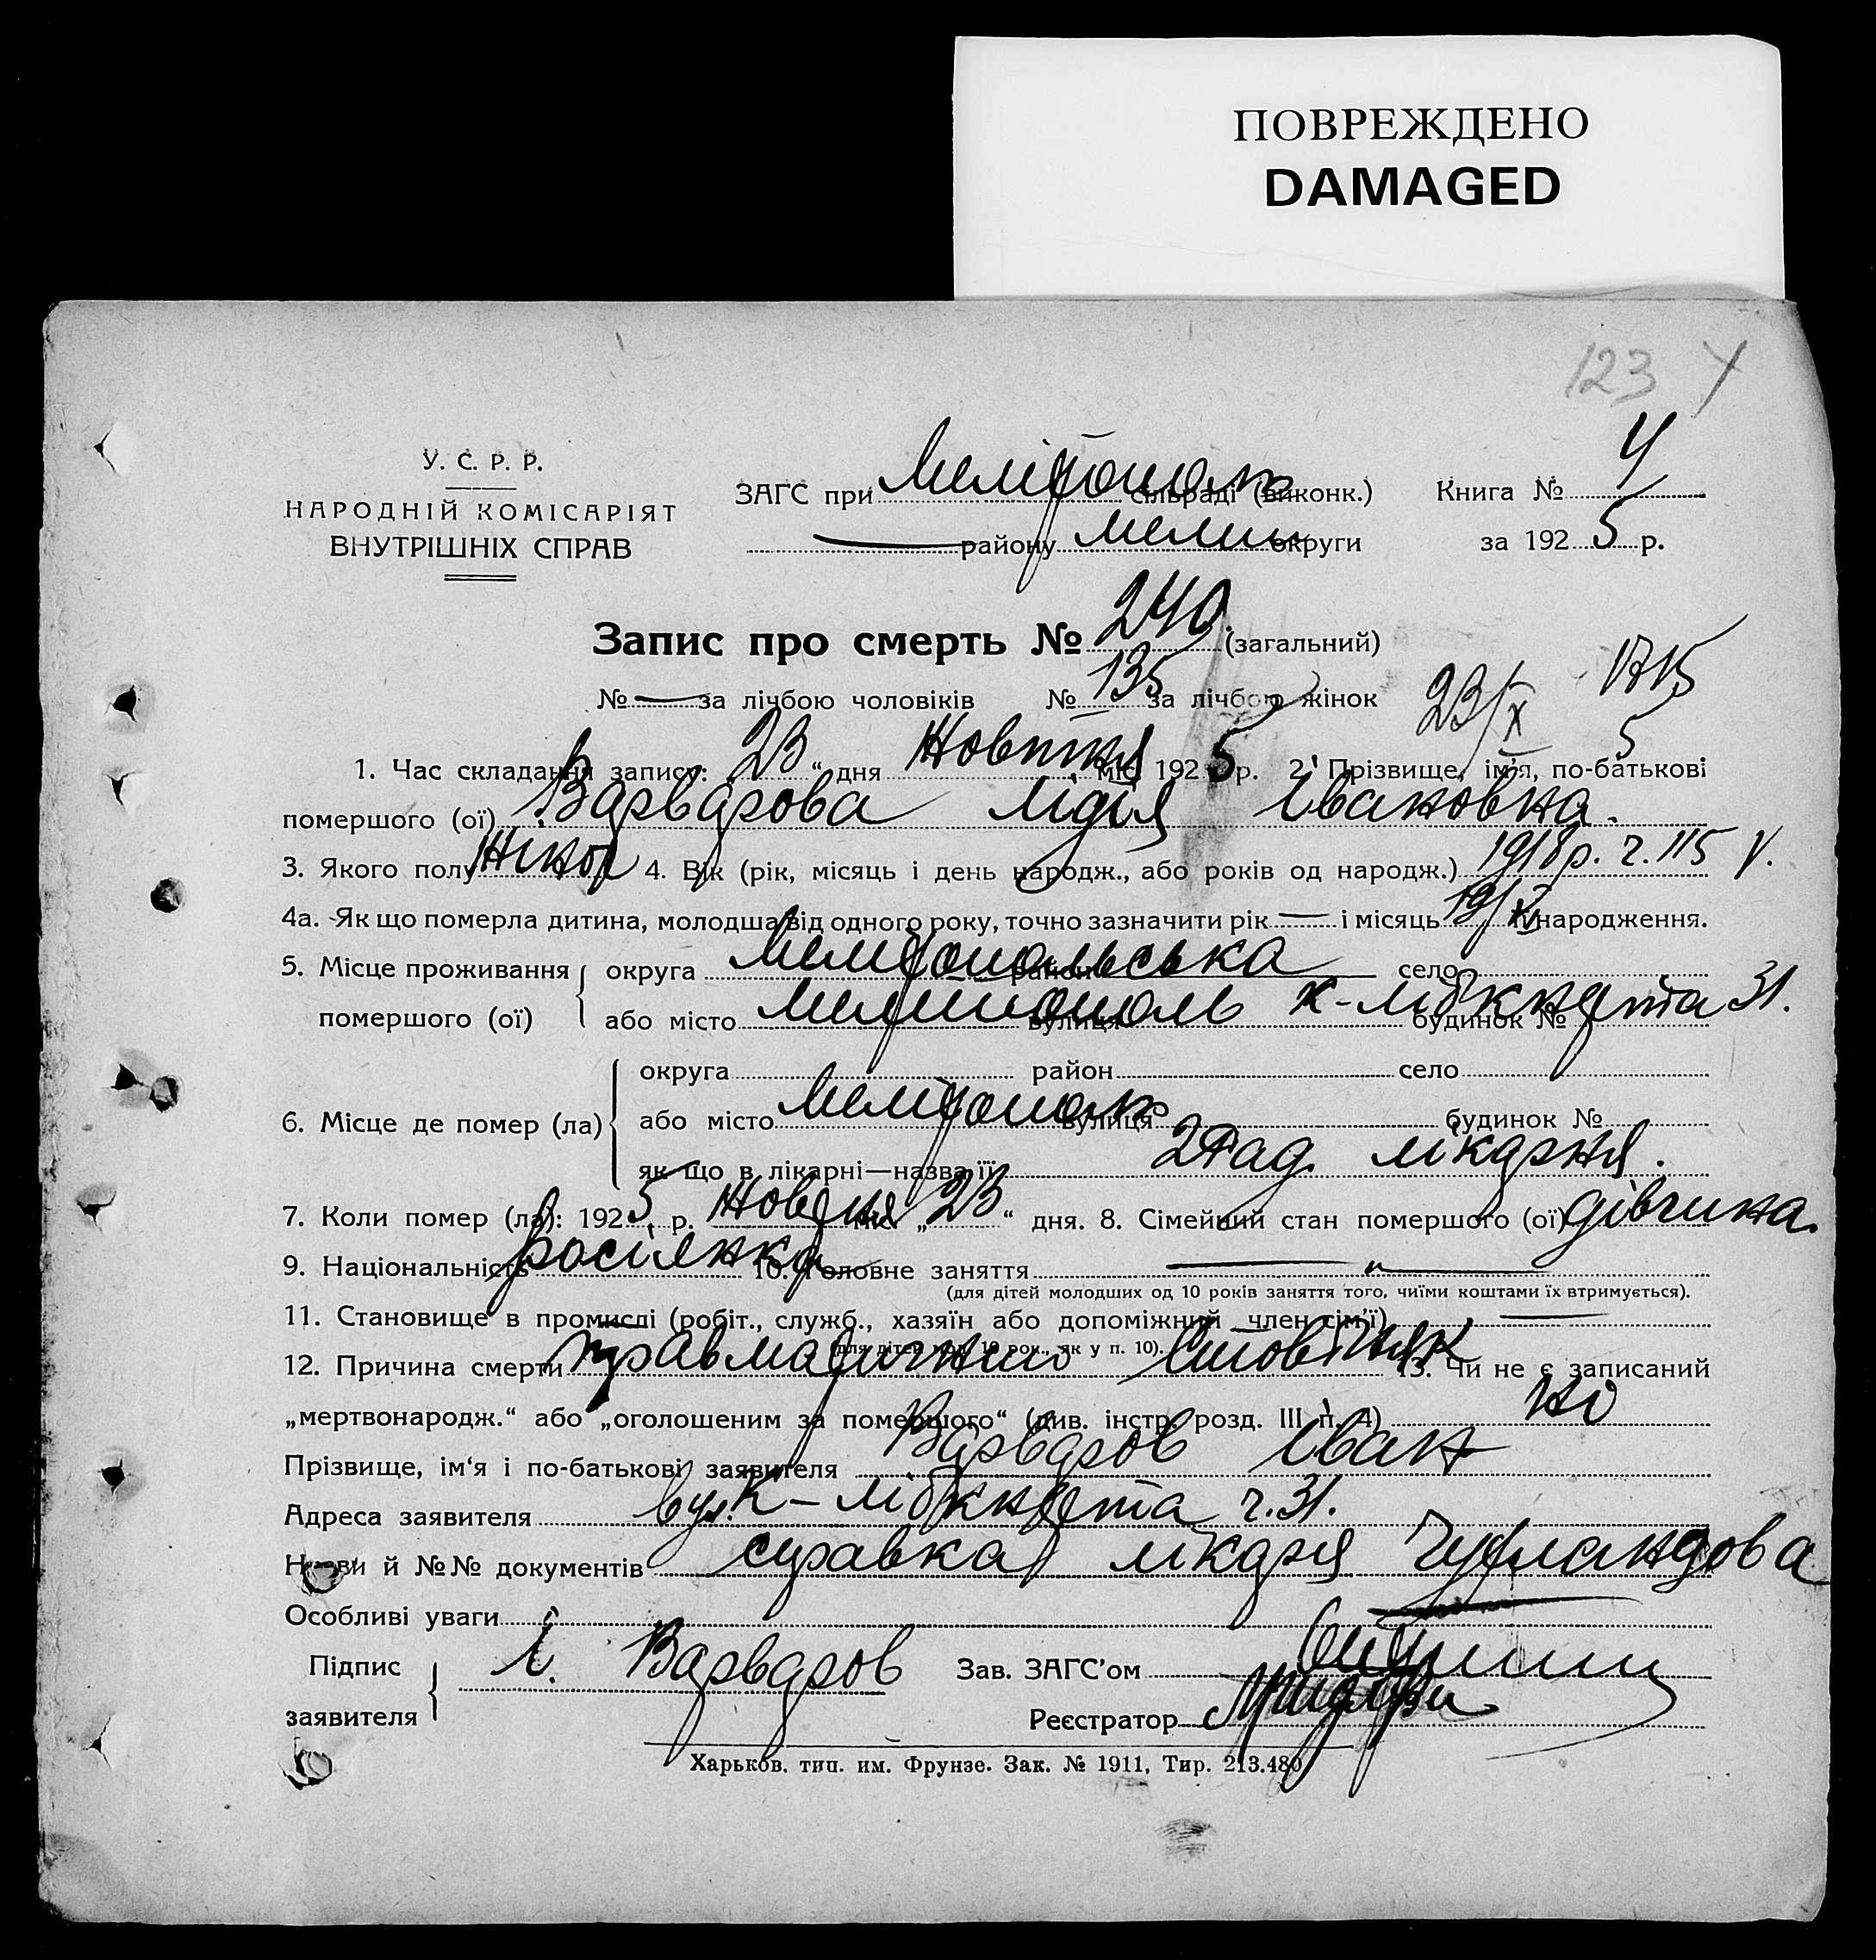 ПОВРЕЖДЕНО
DAMAGED
123
У. С. Р. Р.
НАРОДНІЙ КОМІСАРІЯТ
ВНУТРІШНІХ СПРАВ
ЗАГС при Мелітополь сільраді (виконк.)
— району Мелит округи
Книга № 4
за 1925 р.
Запис про смерть № 240 (загальний)
№ — за лічбою чоловіків № 135 за лічбою жінок 23/X 5
1. Час складання запису: „23“ дня Жовтня міс. 1925 р. 2. Прізвище, ім'я, по-батькові
помершого (ої) Варварова Лідія Івановна.
3. Якого полу Жіноч 4. Вік (рік, місяць і день народж., або років од народж.) 1918 р.
4а. Як що померла дитина, молодша від одного року, точно зазначити рік — і місяць народження.
5. Місце проживання помершого (ої) округа Мелітопольська район — село
або місто Мелітополь вулиця К-Лібкнехта будинок № 31.
6. Місце де помер (ла) округа район село
або місто Мелітополь вулиця будинок №
як що в лікарні—назва її 2 Рад. лікарня.
7. Коли помер (ла): 1925 р. Жовтня міс. „23“ дня. 8. Сімейний стан помершого (ої) дівчина.
9. Національність росіянка 10. Головне заняття — „ —
(для дітей молодших од 10 років заняття того, чиїми коштами їх втримується).
11. Становище в промислі (робіт., служб., хазяїн або допоміжний член сім'ї) —
(для дітей мол. 10 рок., як у п. 10).
12. Причина смерти Стовбняк 13. Чи не є записаний
„мертвонародж.“ або „оголошеним за помершого“ (див. інстр. розд. III п. 4) ні
Прізвище, ім'я і по-батькові заявителя Варваров Іван
Адреса заявителя вул. К-Лібкнехта ч. 31.
Назви й №№ документів справка лікаря
Особливі уваги
Підпис заявителя І. Варваров
Зав. ЗАГС'ом
Реєстратор
Харьков. тип. им. Фрунзе. Зак. № 1911, Тир. 213.480